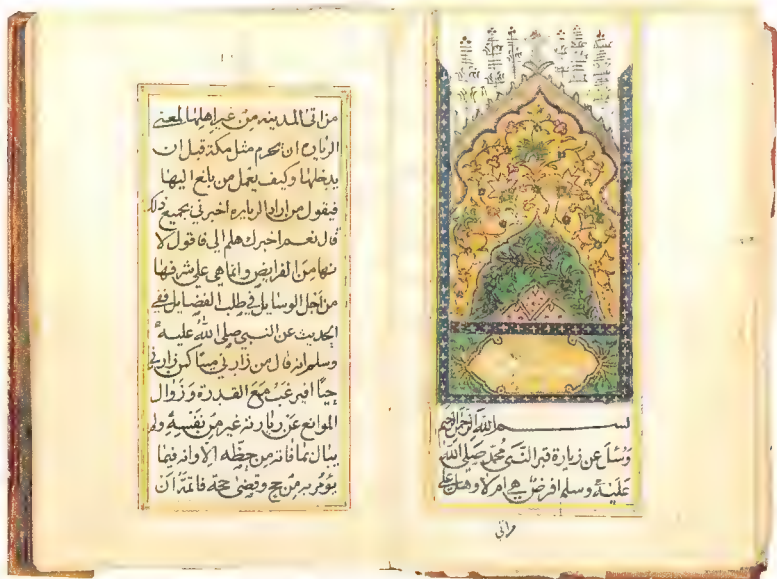 بسم الله الرحمن الرحيم
وسل عن زيارة قبر النبي محمد صلى الله
عليه وسلم افرض هي ام لا وهل على
من اتى
من اتى المدينه من غير اهلها لمعنى
الزياره ان يحرم مثل مكة قبل ان
يدخلها وكيف يعمل من بلغ اليها
فيقول من اراد الزياره اخبرني بجميع ذلك
قال نعم اخبرك هلم الي فاقول لا
نها من الفرايض وانما هي على شرفها
من اجل الوسايل في طلب الفضايل ففي
الحديث عن النبي صلى الله عليه
وسلم انه قال من زارني ميتا كمن زارني
حيا افيرغب مع القدرة وزوال
الموانع عن زيارته غير من نفسه ولم
يبال بما فاته من حظه الا وانه فيما
يؤمر به من حج وقضى حجه فاتمه ان